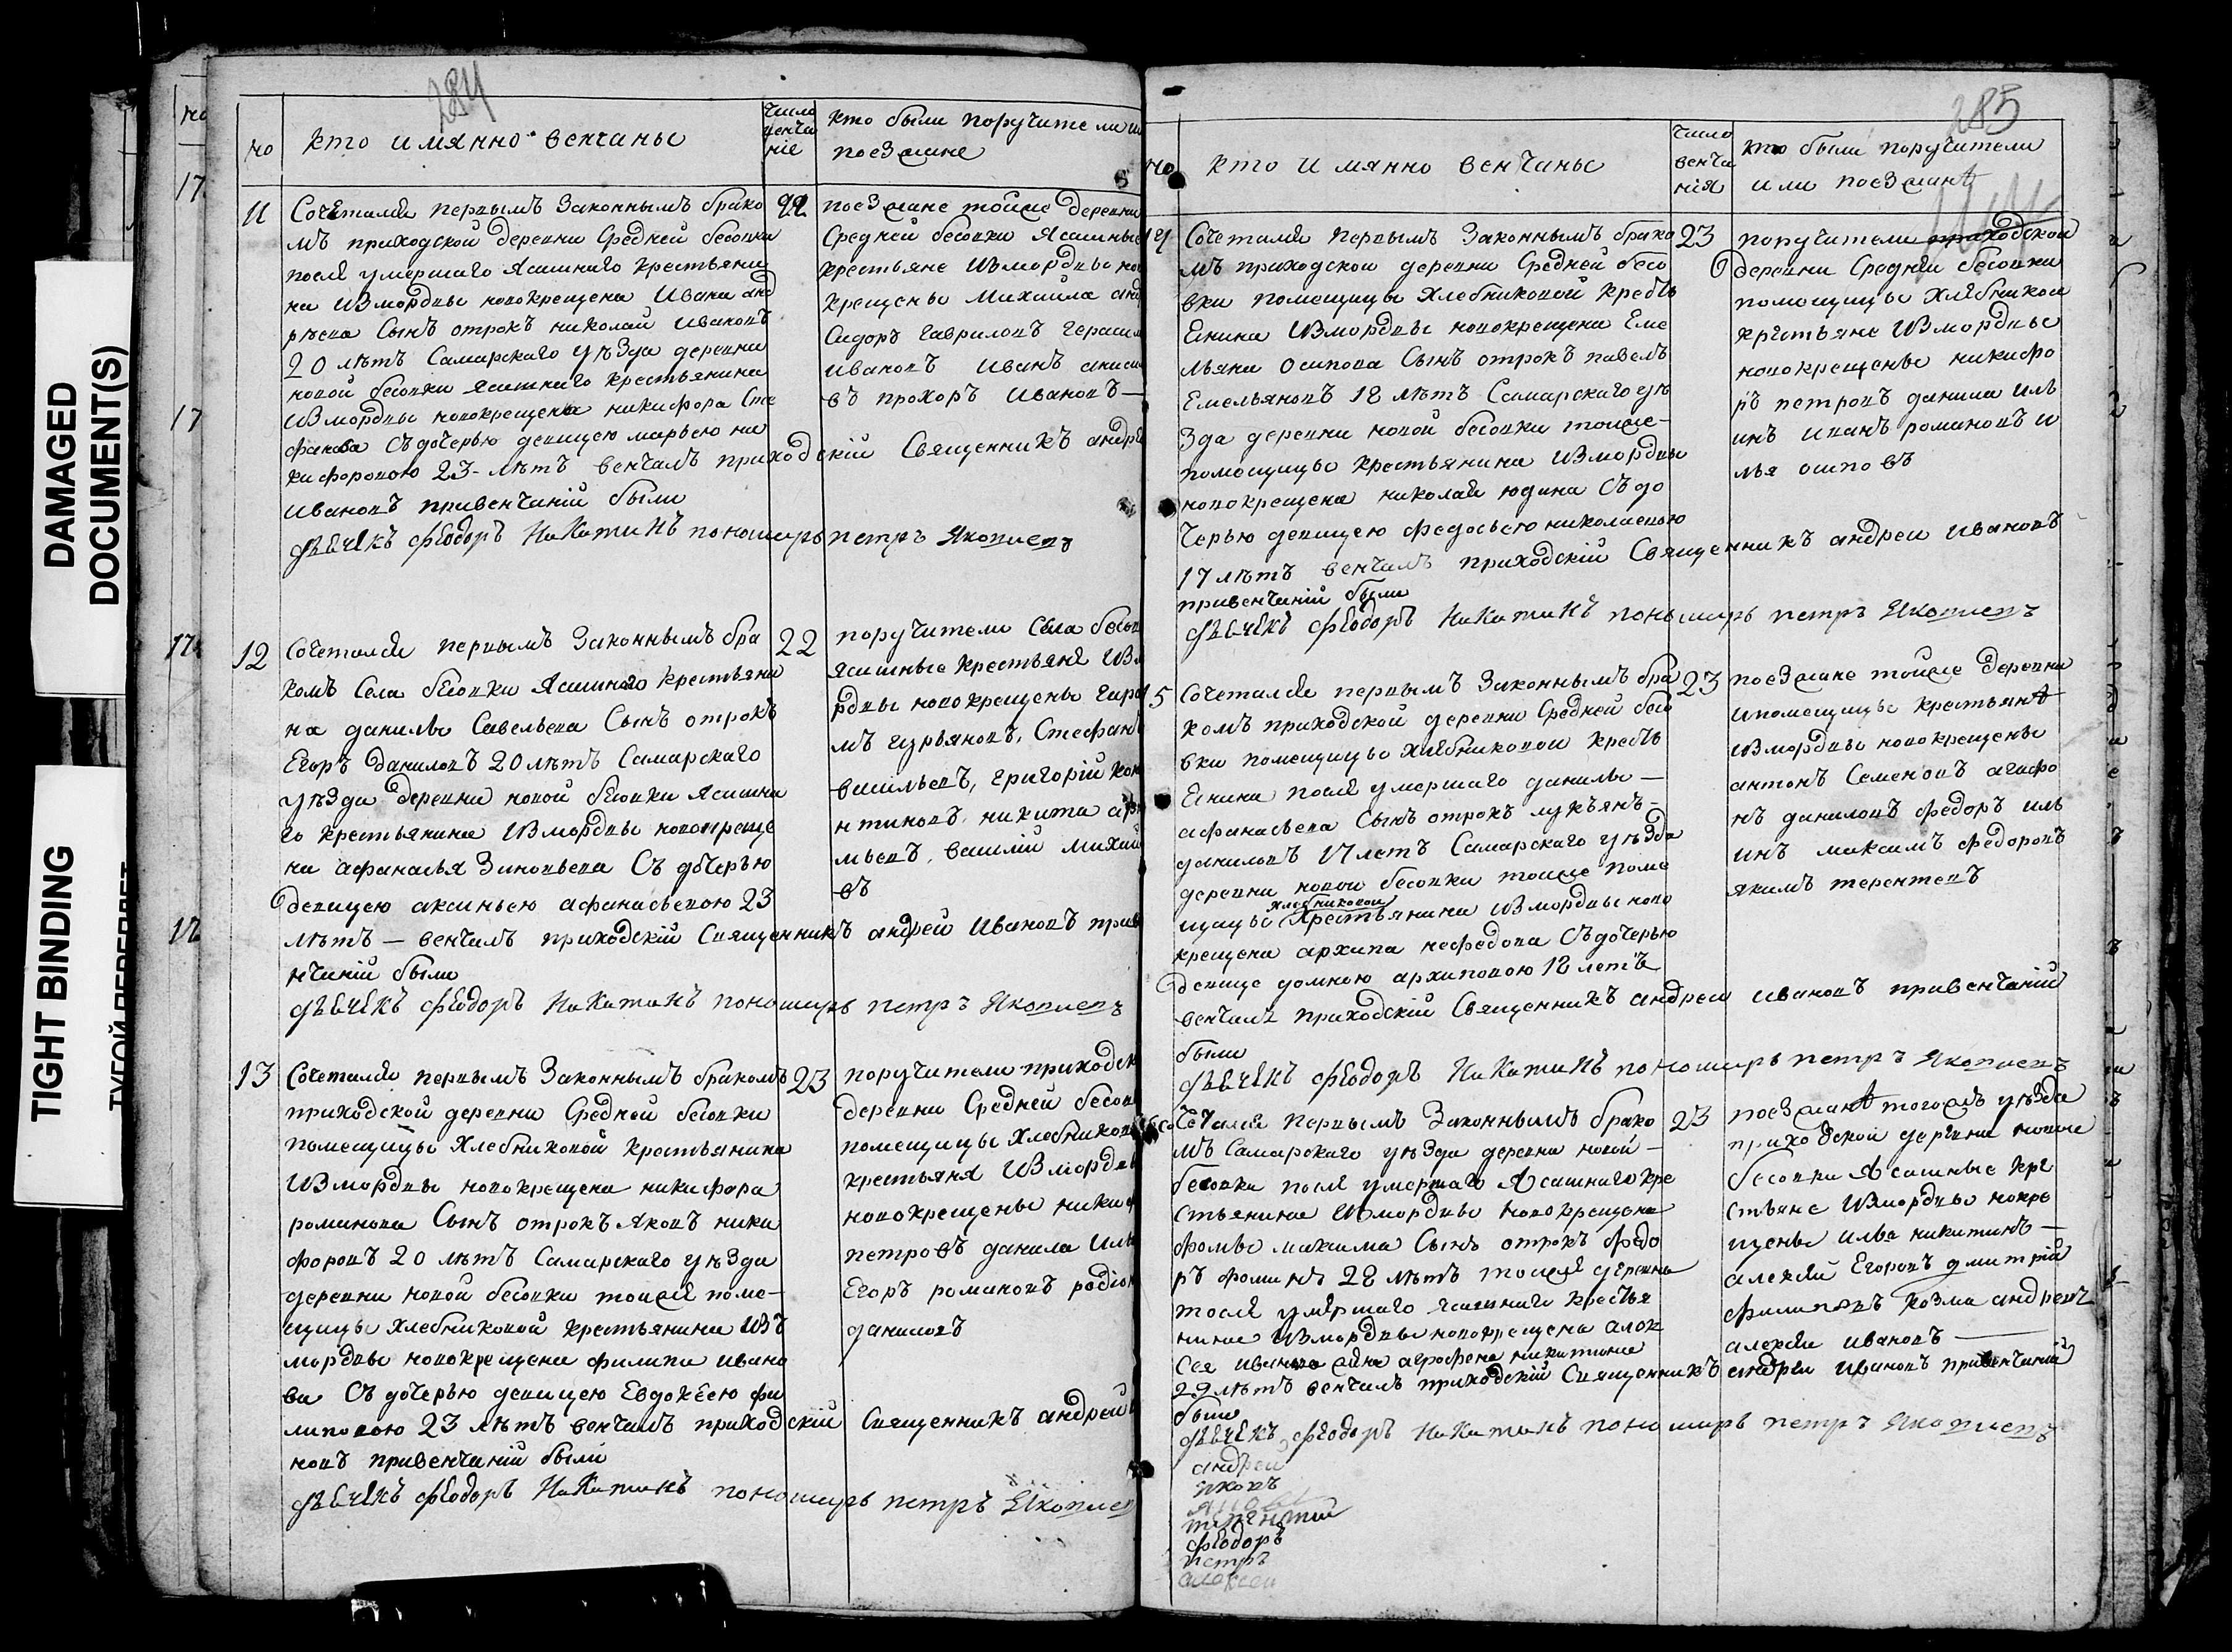 DAMAGED
DOCUMENT(S)
TIGHT BINDING
ТУГОЙ ПЕРЕПЛЕТ
17
17
17
17
284
но
кто имянно венчаны
число
венча
ніе
кто были поручители
поезжане
11
Сочетался первымъ законнымъ брако
мъ приходской деревни Средней бесовки
после умершаго ясашнаго крестьяни
на измордвы новокрещена Ивана Анд
реева Сынъ отрокъ николай ивановъ
20 лѣтъ Самарскаго уѣзда деревни
новой бесовки ясашнаго крестьянина
измордвы новокрещена никифора Сте
фанова Съдочерью девицею марьею ни
кифоровою 23- лѣтъ венчалъ приходскій Священникъ андре
ивановъ привенчаніи были
дьячекъ феодоръ Никитинъ пономарь петръ Яковлевъ
22
поезжане тойже деревни
Средней бесовки Ясашные
крестьяне измордвы но
крещены Михаила анд
Сидоръ гавриловъ герасим
ивановъ иванъ аниси
въ прохоръ ивановъ —
12
Сочетался первымъ законнымъ бра
комъ Села бесовки Ясашнаго крестьяни
на данилы Савельева Сынъ отрокъ
Егоръ даниловъ 20 лѣтъ Самарскаго
уѣзда деревни новой бесовки Ясашна
го крестьянина измордвы новокреще
на афанасья Зиновьева Съ дочерью
девицею аксиньею афанасьевою 23
лѣтъ — венчалъ приходскій Священникъ андрей ивановъ приве
нчаніи были
дьячекъ феодоръ Никитинъ пономарь петръ Яковлевъ
22
поручители Села бесов
ясашные крестьяне изм
рдвы новокрещены гара
мъ гурьяновъ, Стефанъ
васильевъ, григорій кон
нтиновъ, никита
мьевъ, василій михай
въ
13
Сочетался первымъ законнымъ бракомъ
приходской деревни Средней бесовки
помещицы хлебниковой крестьянина
измордвы новокрещена никифора
романова Сынъ отрокъ Яковъ ники
форовъ 20 лѣтъ Самарскаго уѣзда
деревни новой бесовки тойже поме-
щицы хлебниковой крестьянина изъ
мордвы новокрещена филипа ивано
ва Съ дочерью девицею Евдокеею фи
липовою 23 лѣтъ венчалъ приходскій Священникъ андрей
новъ привенчаніи были
дьячекъ феодоръ Никитинъ пономарь петръ Яковлев
23
поручители приходск
деревни Средней бесов
помещицы хлебников
крестьяня измордв
новокрещены никиф
петровъ данила иль
Егоръ романовъ родіон
даниловъ
285
но
кто имянно венчаны
число
венча
нія
кто были поручители
или поезжанѣ
14
Сочетался первымъ законнымъ брако
мъ приходской деревни Средней бесо
вки помещицы хлебниковой крестъ
янина измордвы новокрещена Еме
льяна осипова Сынъ отрокъ павелъ
Емельяновъ 18 лѣтъ Самарскаго уѣ
зда деревни новой бесовки тойже-
помещицы крестьянина измордвы
новокрещена николая юдина Съ до
черью девицею федосьею николаевою
17 лѣтъ венчалъ приходскій Священникъ андреи ивановъ
привенчаніи были
дьячекъ феодоръ Никитинъ пономарь петръ Яковлевъ
23
поручители приходской
деревни Средней бесовки
помещицы хлебников
крестьяне измордвы
новокрещены никифо
ръ петровъ данила иль
инъ иванъ романовъ и
лья осиповъ
15
Сочетался первымъ законнымъ бра
комъ приходской деревни Средней бесо
вки помещицы хлебниковой крестъ
янина после умершаго данилы —
афанасьева Сынъ отрокъ лукъянъ-
даниловъ 17 летъ Самарскаго уѣзда
деревни новой бесовки тойже поме
щицы хлебниковой крестьянина измордвы ново
крещена архипа нефедова Съдочерью
девице домною архиповою 18 летъ
венчалъ приходскій Священникъ андреи ивановъ привенчаніи
были
дьячекъ феодоръ Никитинъ пономарь петръ Яковлевъ
23
поезжане тойже деревни
ипомещицы крестьянѣ
измордвы новокрещены
антонъ Семеновъ агафо
нъ даниловъ федоръ иль
инъ максимъ федоровъ
якимъ терентевъ
16
Сочетался первымъ законнымъ брако
мъ Самарскаго уѣзда деревни новой-
бесовки после умершаго Ясашнаго кре
стьянина измордвы новокрещена
фомы максима Сынъ отрокъ федо
ръ фоминъ 28 лѣтъ тойже деревни
после умершаго ясашнаго крестья
нина измордвы новокрещена алек
сея иванова агрофена никитина
29 лѣтъ венчалъ приходскій Священникъ андреи ивановъ привенчаніи
были
дьячекъ феодоръ Никитинъ пономарь петръ Яковлевъ
23
поезжанѣ тогожъ уѣзда
приходской деревни новые
бесовки Ясашные кре
стьяне измордвы нокре
щены илья никитинъ —
алексѣй Егоровъ дмитрій
филиповъ козма андреевъ
алексѣи ивановъ —
андреи
яковъ
терентии
феодоръ
петръ
алексеи